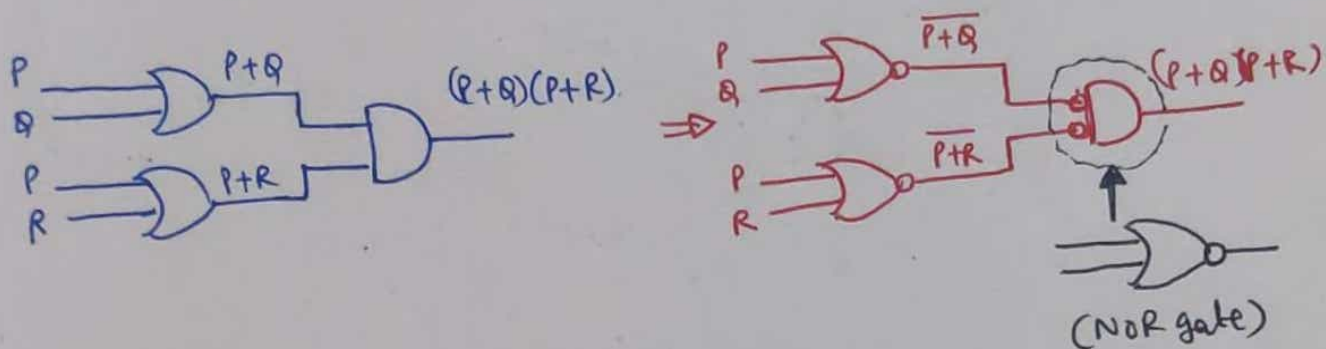 P
Q
P+Q
P
R
P+R
(P+Q)(P+R).
⇒
P
Q
\overline{P+Q}
P
R
\overline{P+R}
(P+Q)(P+R)
(NOR gate)